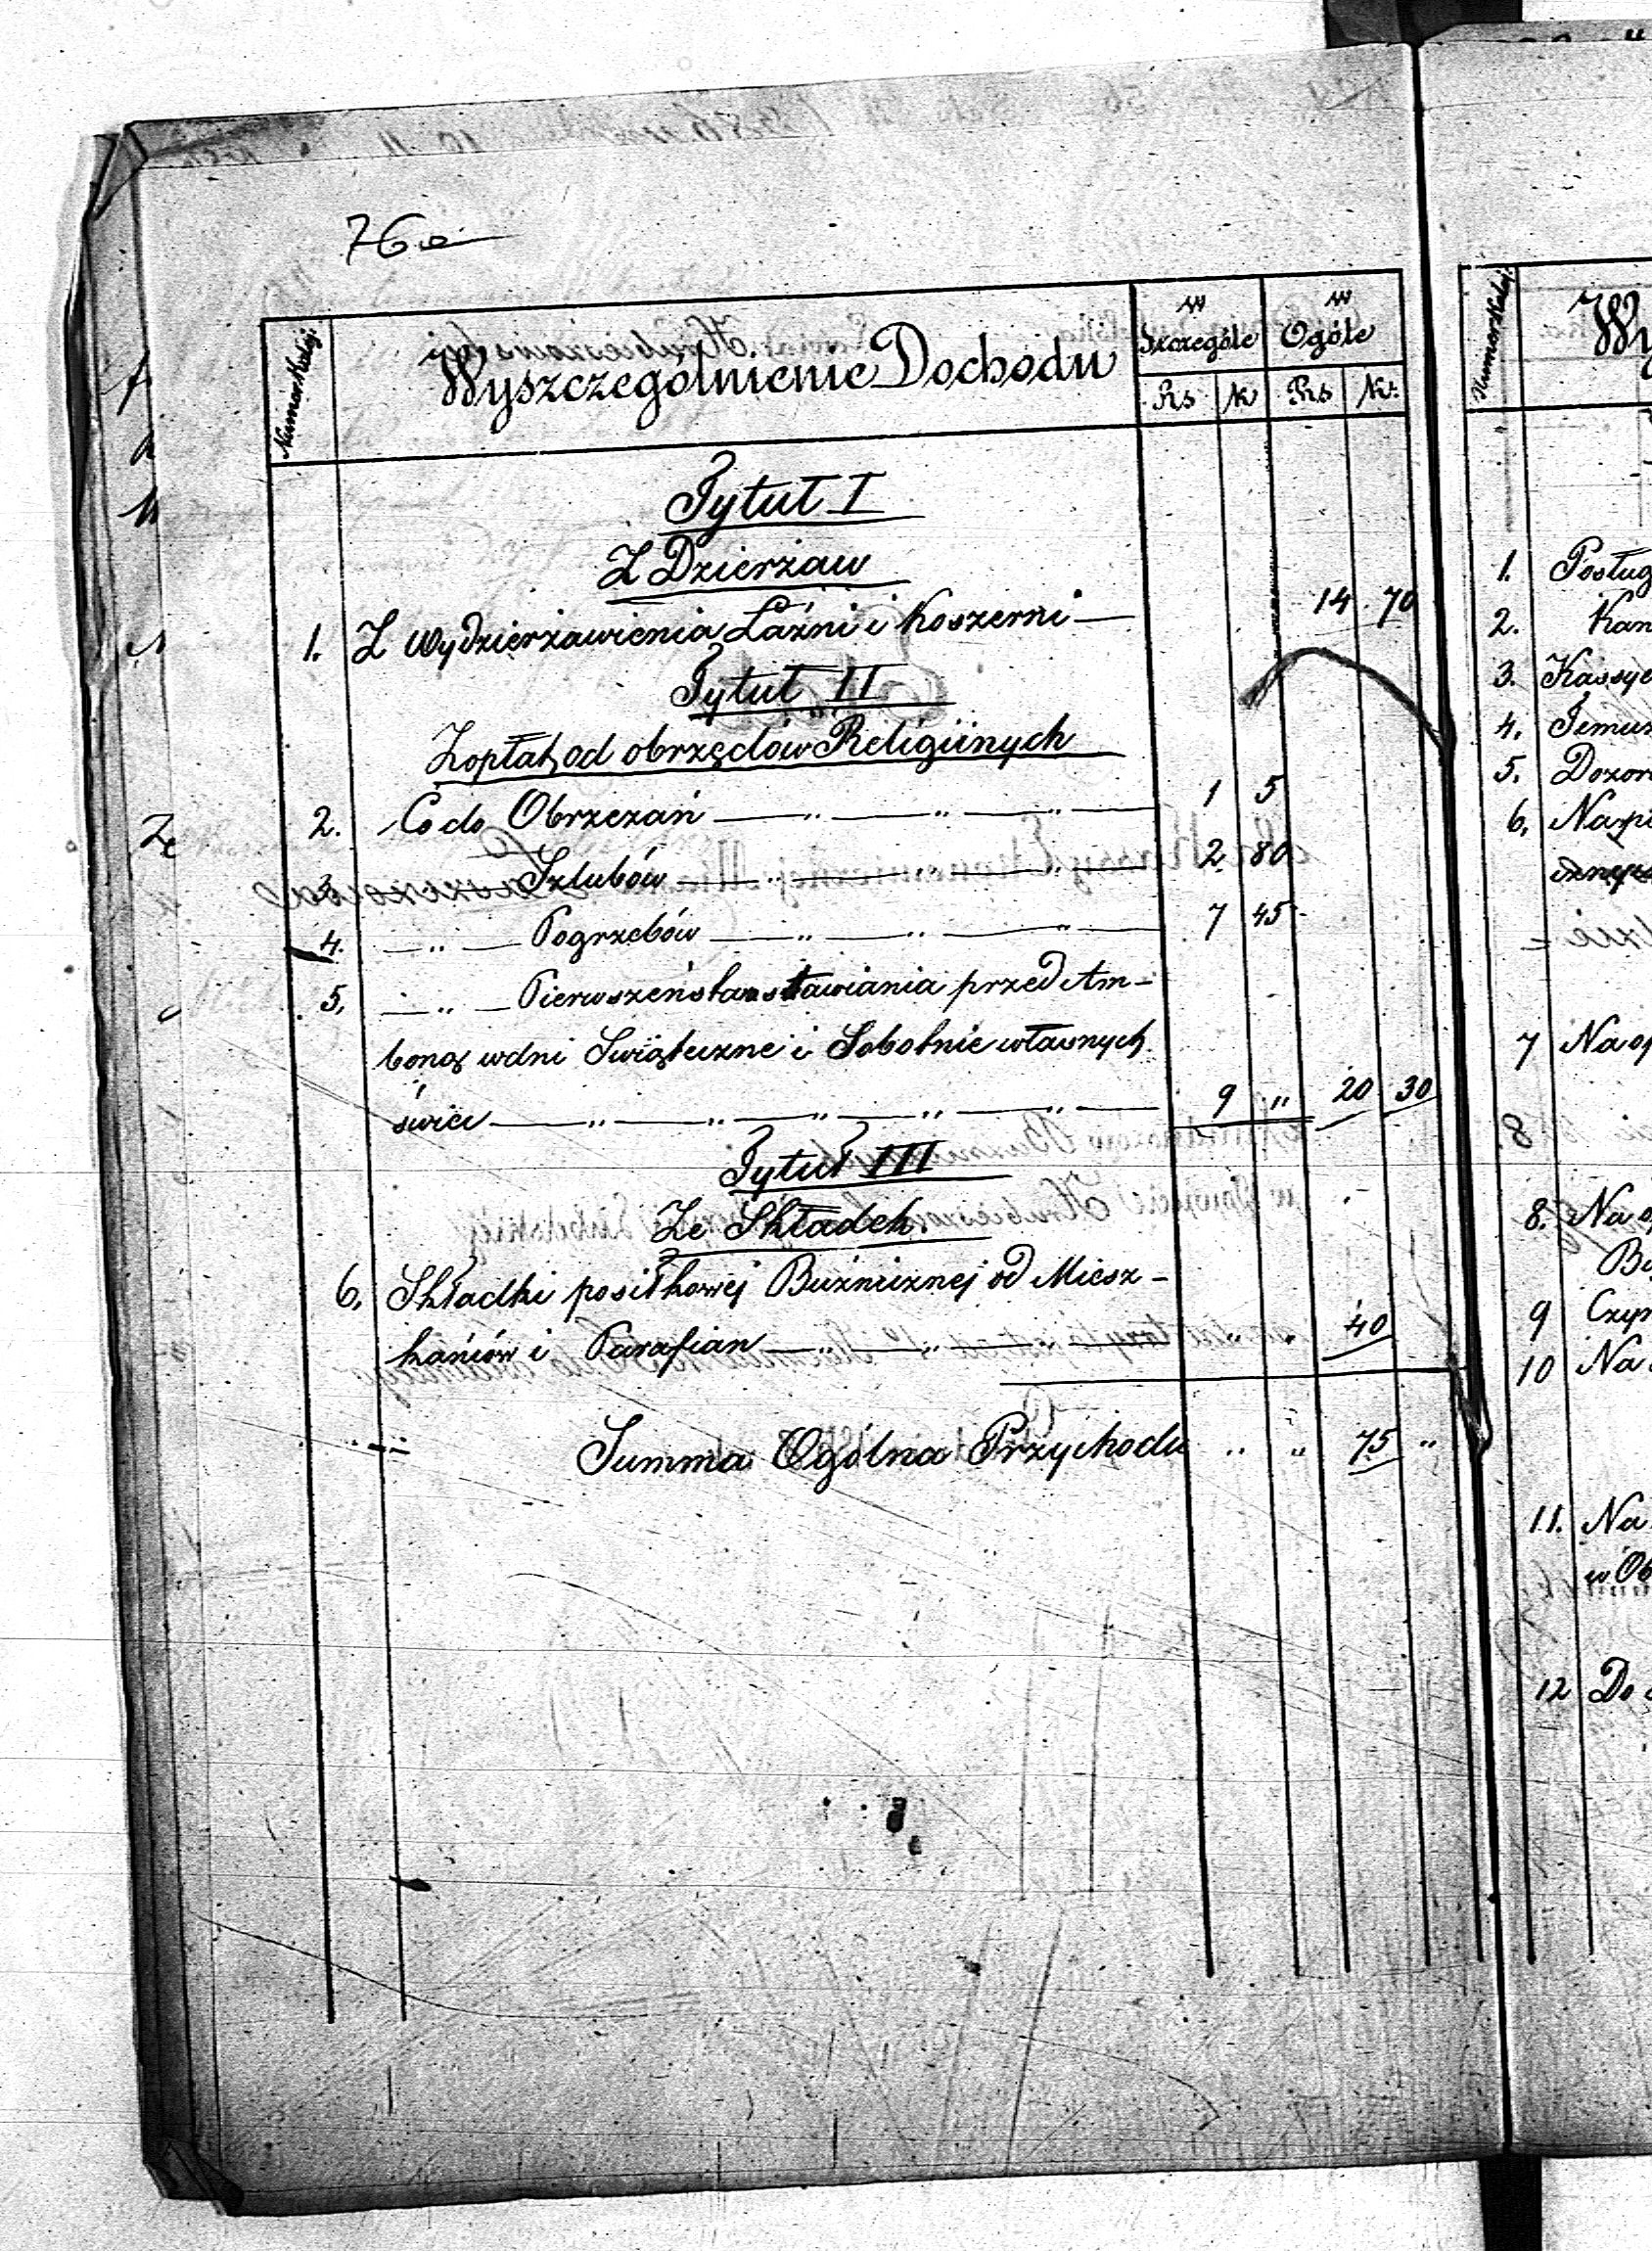 76a
Numer Kolej.
Wyszczególnienie Dochodu
w Szczególe
w Ogóle
Rs K Rs K.
Tytuł I
Z Dzierżaw
1. Z Wydzierżawienia Łaźni i Koszerni — 14 70
Tytuł II
Z opłat od obrzędów Religiinych
2. Co do Obrzezań — „ — „ — „ — 1 5
3. Szlubów — „ — „ — 2 80
4. — „ — Pogrzebów — „ — „ — „ — 7 45
5. — „ — Pierwszeństwa stawiania przed Am-
boną w dni Swiąteczne i Sobotnie własnych
świec — „ — „ — „ — „ — „ — 9 „ 20 30
Tytuł III
Ze Składek
6. Składki posiłkowej Buźnicznej od Miesz-
kańców i Parafian — „ — „ — „ — „ „ 40
Summa Ogólna Przychodu „ „ 75 „
Numer Kolej.
Wy
1. Posług
2. Kan
3. Kassye
4. Temuż
5. Dozor
6. Na
7 Na op
8. Na
9 Czyn
10 Na
11. Na
w Ob
12 Do